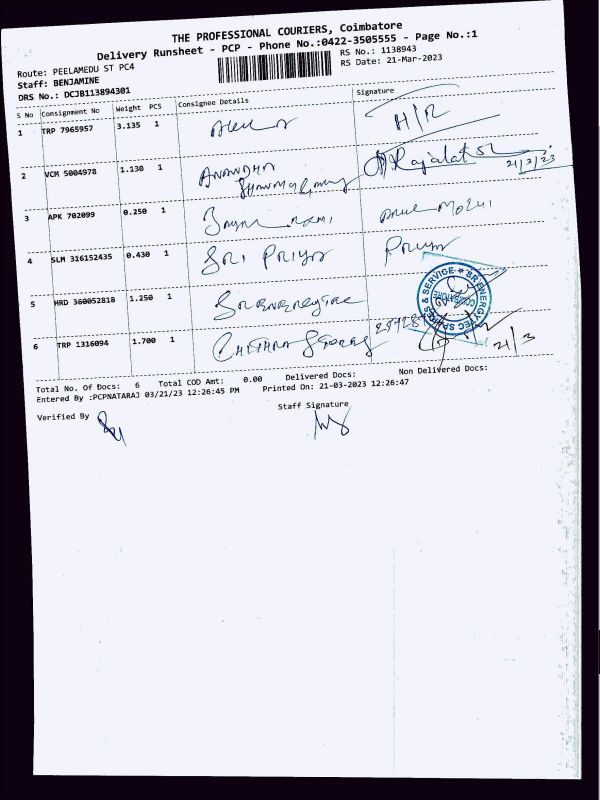 THE PROFESSIONAL COURIERS, Coimbatore
Delivery Runsheet - PCP - Phone No.:0422-3505555 - Page No.:1
Route: PEELAMEDU ST PC4
RS No.: 1138943
Staff: BENJAMINE
RS Date: 21-Mar-2023
DRS No.: DCJB113894301
S No Consignment No Weight PCS Consignee Details Signature
1 TRP 7965957 3.135 1 H/R
2 VCM 5004978 1.130 1 ANANDHA Rajalat
21/3/23
3 APK 702099 0.250 1
4 SLM 316152435 0.430 1 SRI PRIYA Priya
5 HRD 360052818 1.250 1
SR ENERGYTEC SPARES & SERVICE
COIMBATORE
6 TRP 1316094 1.700 1 CHITHRA 21/3
Total No. Of Docs: 6 Total COD Amt: 0.00 Delivered Docs: Non Delivered Docs:
Entered By :PCPNATARAJ 03/21/23 12:26:45 PM Printed On: 21-03-2023 12:26:47
Verified By Staff Signature